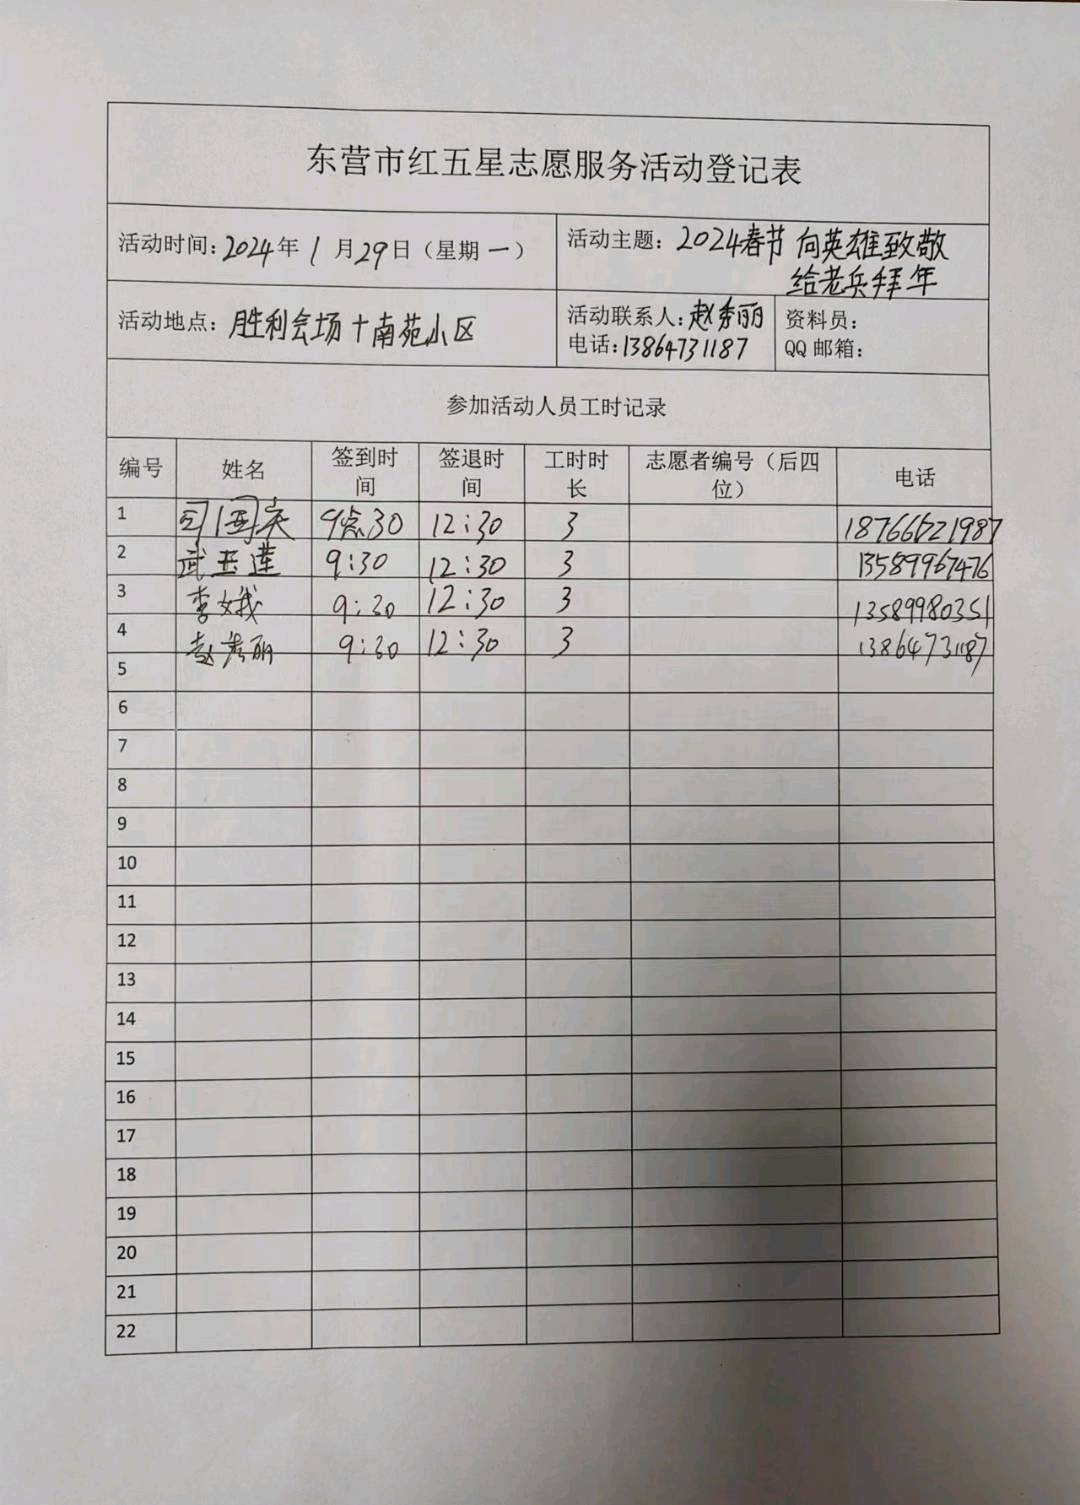 东营市红五星志愿服务活动登记表
活动时间:2024年1月29日（星期一）
活动主题：2024春节 向英雄致敬
给老兵拜年
活动地点：胜利会场+南苑小区
活动联系人:赵秀丽
电话:13864731187
资料员：
QQ邮箱：
参加活动人员工时记录
编号 姓名 签到时间 签退时间 工时时长 志愿者编号（后四位） 电话
1 司国庆 9点30 12:30 3 18766621987
2 武玉莲 9:30 12:30 3 13589967476
3 李娥 9:30 12:30 3 13589980351
4 赵秀丽 9:30 12:30 3 13864731187
5
6
7
8
9
10
11
12
13
14
15
16
17
18
19
20
21
22